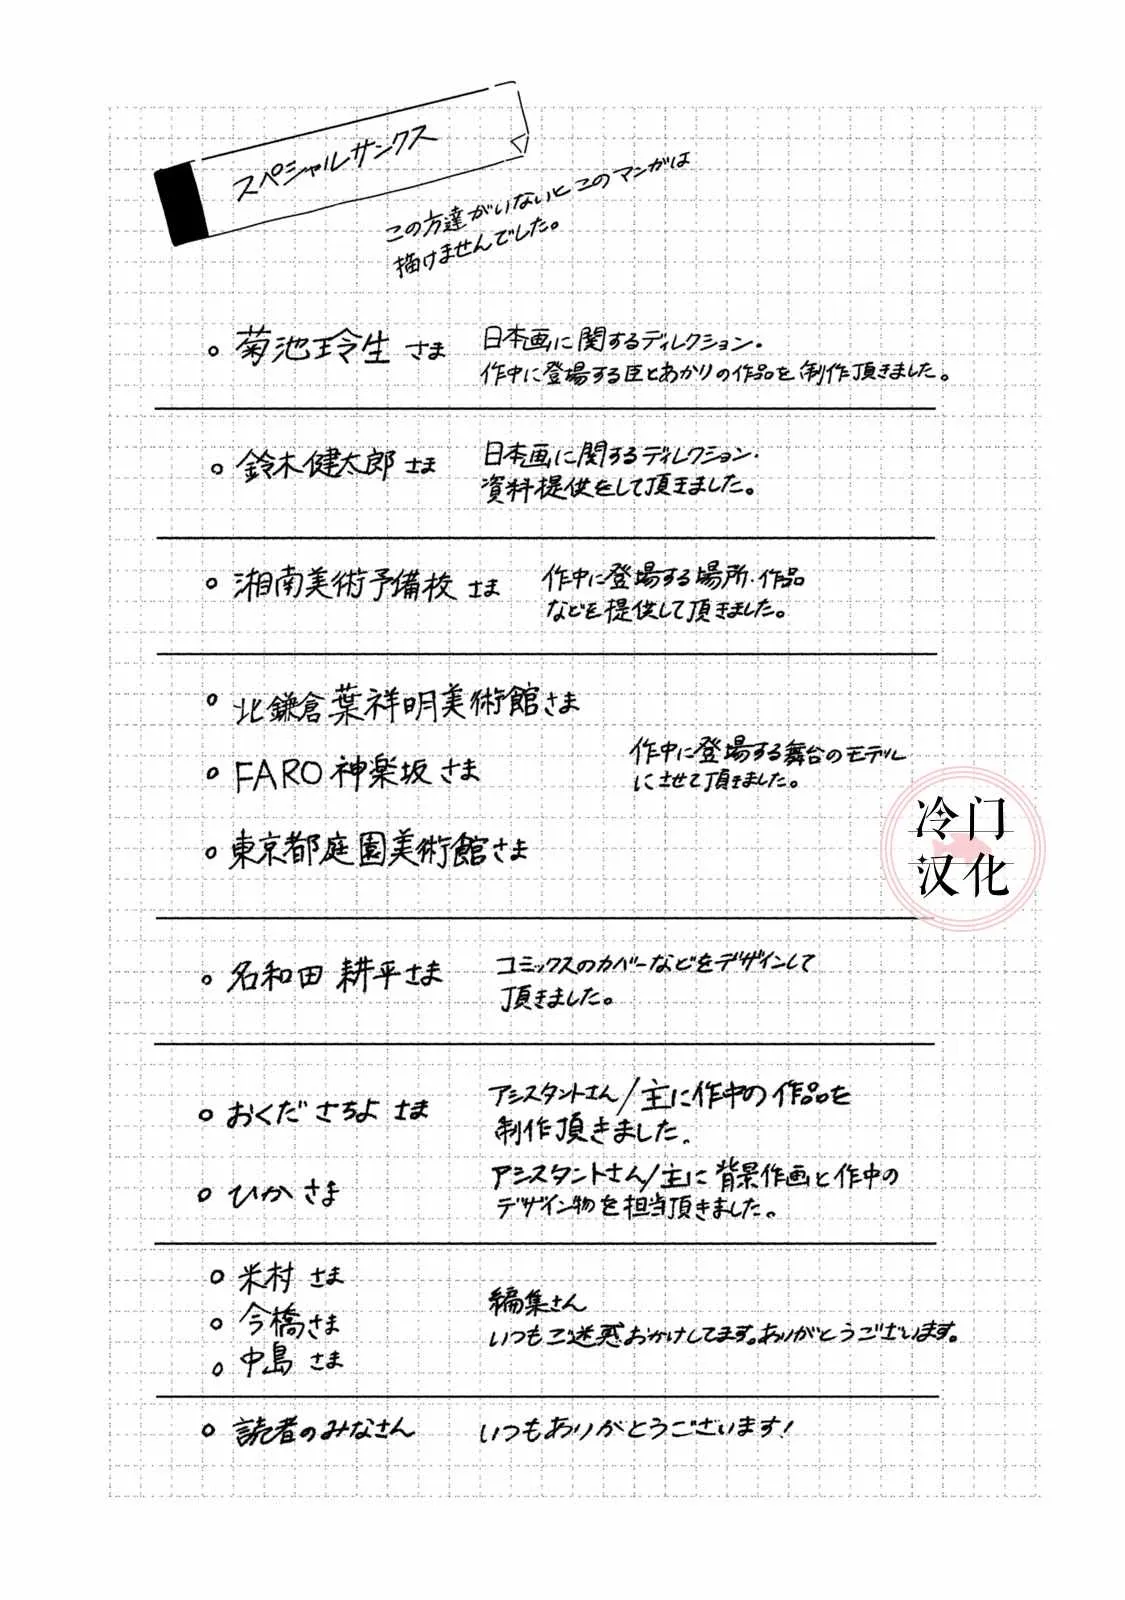 スペシャルサンクス
この方達がいないとこのマンガは
描けませんでした。
菊池玲生 さま
日本画に関するディレクション.
作中に登場する臣とあかりの作品を制作頂きました。
鈴木健太郎 さま
日本画に関するディレクション.
資料提供をして頂きました。
湘南美術予備校 さま
作中に登場する場所・作品
などを提供して頂きました。
北鎌倉葉祥明美術館さま
FARO神楽坂さま
東京都庭園美術館さま
作中に登場する舞台のモデル
にさせて頂きました。
名和田 耕平さま
コミックスのカバーなどをデザインして
頂きました。
おくださちよ さま
アシスタントさん/主に作中の作品を
制作頂きました.
ひか さま
アシスタントさん/主に背景作画と作中の
デザイン物を担当頂きました。
米村 さま
今橋さま
中島 さま
編集さん
いつもご迷惑おかけしてます。ありがとうございます。
読者のみなさん
いつもありがとうございます!
冷门
汉化